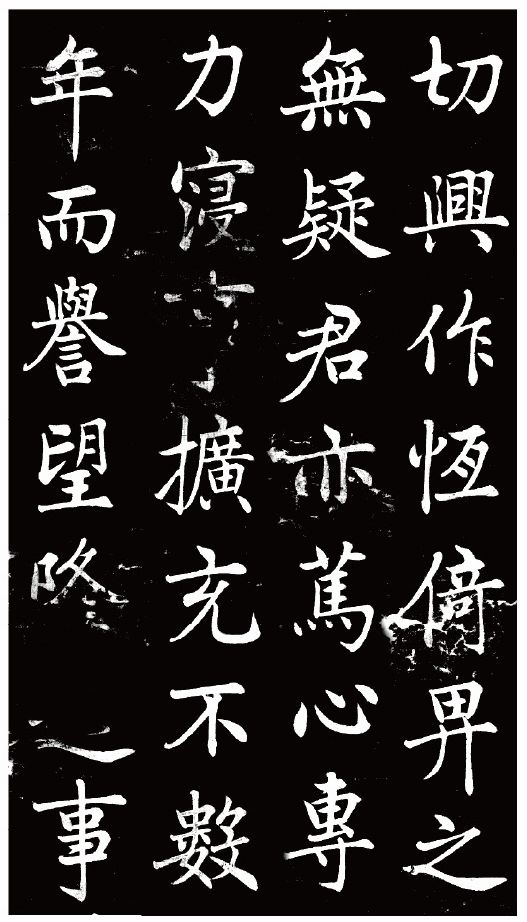 切興作恆倚畀之
無疑君亦篤心專
力寖擴充不數
年而譽望隆之事